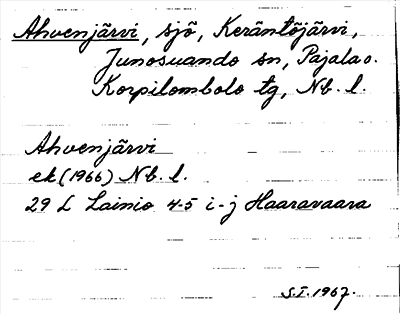 Ahvenjärvi, sjö, Keräntöjärvi,
Junosuando sn, Pajala o.
Korpilombolo tg, Nb. l.
Ahvenjärvi
ek (1966) Nb. l.
29 L Lainio 4-5 i-j Haaravaara
S.I. 1967.